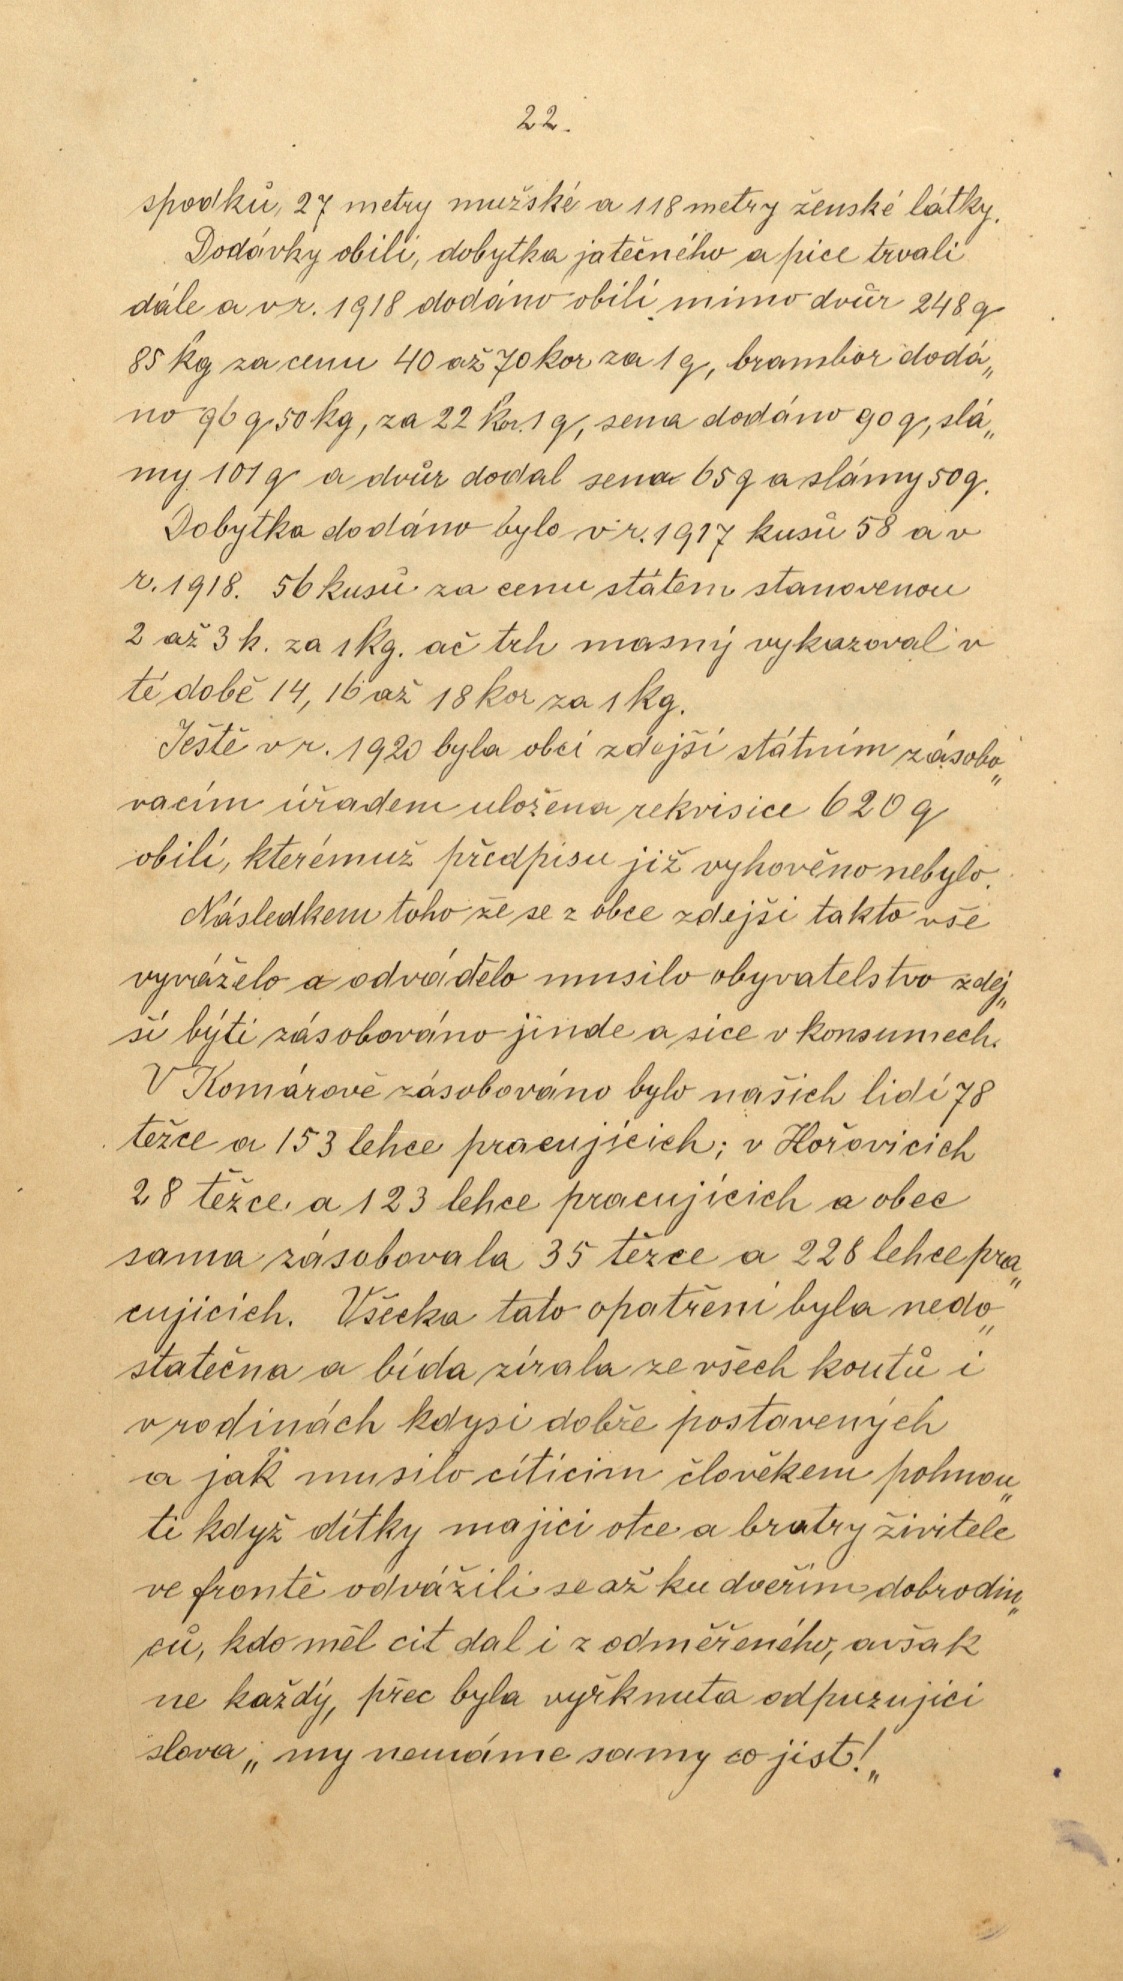 22.
spodků, 27 metry mužské a 118 metry ženské látky.
Dodávky obilí, dobytka jatečného a píce trvali
dále a v r. 1918 dodáno obilí mimo dvůr 248 q
85 kg za cenu 40 až 70 kor za 1 q, brambor dodá„
no 96 q 50 kg, za 22 kor. 1 q, sena dodáno 90 q, slá„
my 101 q a dvůr dodal sena 65 q a slámy 50 q.
Dobytka dodáno bylo v r. 1917 kusů 58 a v
r. 1918. 56 kusů za cenu státem stanovenou
2 až 3 k. za 1 kg. ač trh masný vykazoval v
té době 14, 16 až 18 kor za 1 kg.
Ještě v r. 1920 byla obci zdejší státním zásobo„
vacím úřadem uložena rekvisice 620 q
obilí, kterémuž předpisu již vyhověno nebylo.
Následkem toho že se z obce zdejší takto vše
vyváželo a odvádělo musilo obyvatelstvo zdej„
ší býti zásobováno jinde a sice v konsumech.
V Komárově zásobováno bylo našich lidí 78
težce a 153 lehce pracujících; v Hořovicích
28 těžce a 123 lehce pracujících a obec
sama zásobovala 35 těžce a 228 lehce pra„
cujících. Všecka tato opatření byla nedo„
statečna a bída zírala ze všech koutů i
v rodinách kdysi dobře postavených
a jak musilo cítícim člověkem pohnou„
ti když dítky mající otce a bratry živitele
ve frontě odvážili se až ku dveřím dobrodin„
ců, kdo měl cit dal i z odměřeného, avšak
ne každý, přec byla vyřknuta odpuzující
slova „ my nemáme samy co jíst!„